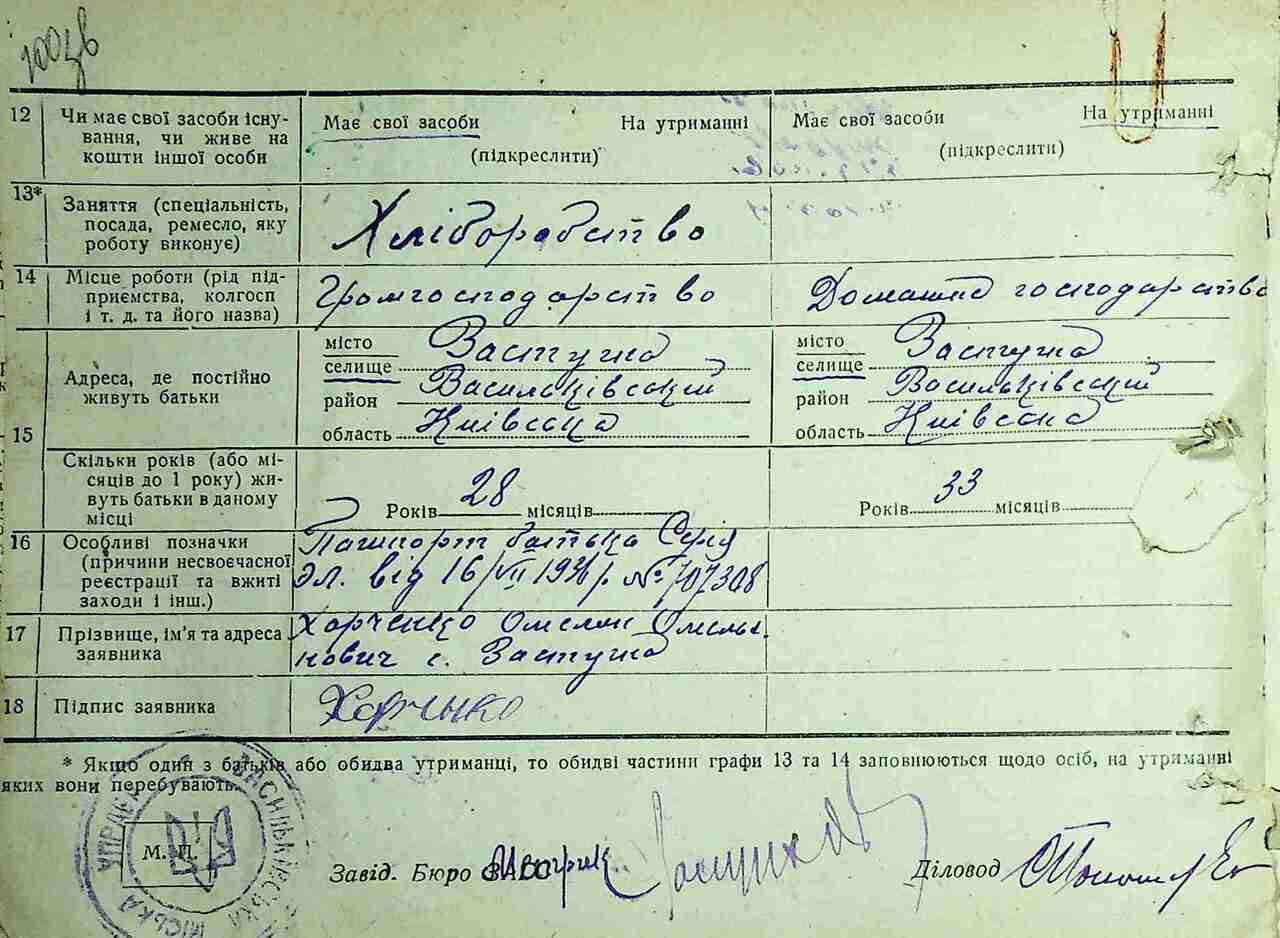 12 Чи має свої засоби існу-
вання, чи живе на
кошти іншої особи
Має свої засоби На утриманні
(підкреслити)
Має свої засоби На утриманні
(підкреслити)
13* Заняття (спеціальність,
посада, ремесло, яку
роботу виконує)
Хліборобство
14 Місце роботи (рід під-
приємства, колгосп
і т. д. та його назва)
Громгосподарство
Домашнє господарство
15 Адреса, де постійно
живуть батьки
місто
селище Застугна
район Васильківський
область Київська
місто
селище Застугна
район Васильківський
область Київська
15 Скільки років (або мі-
сяців до 1 року) жи-
вуть батьки в даному
місці
Років 28 місяців
Років 33 місяців
16 Особливі позначки
(причини несвоєчасної
реєстрації та вжиті
заходи і інш.)
Пашпорт батька Серія
від 16/VII 1936 р № 707308
17 Прізвище, ім'я та адреса
заявника
Харченко Омелян Омелья-
нович с. Застугна
18 Підпис заявника
Харченко
* Якщо один з батьків або обидва утриманці, то обидві частини графи 13 та 14 заповнюються щодо осіб, на утриманні
яких вони перебувають.
М. П.
ВАСИЛЬКІВСЬКА МІСЬКА УПРАВА
Завід. Бюро ЗАГС
Діловод